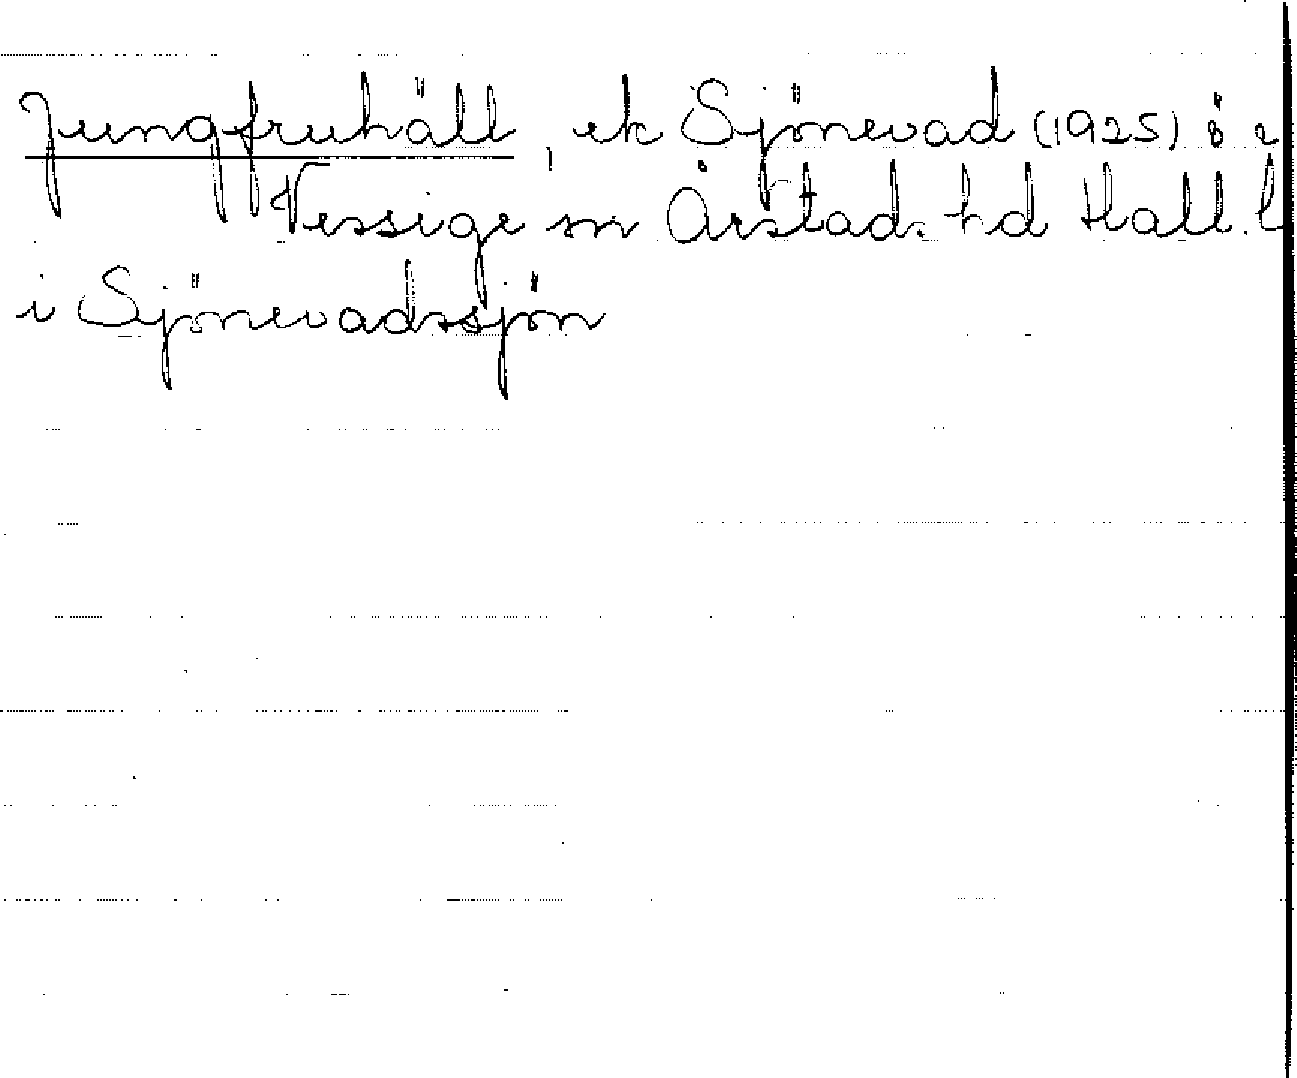 Jungfruhäll, ek Sjönevad (1925) ö e
Vessige sn Årstads hd Hall. l
i Sjönevadssjön